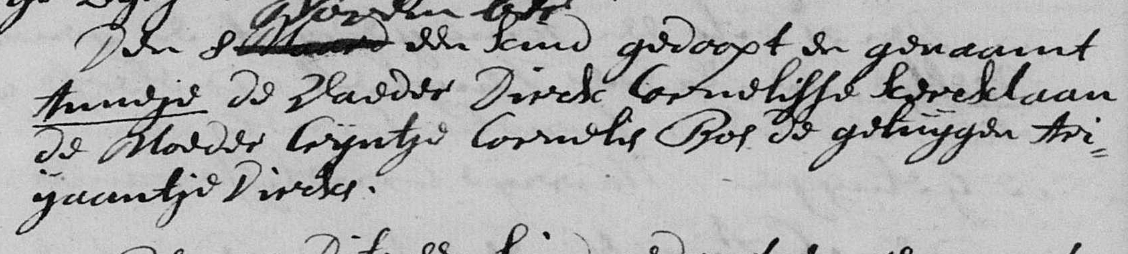 November
Den 8 Maard een kind gedoopt en genaamt
Annetje de Vaeder Dirck Cornelisse kercklaan
de Moeder Crijntje Cornelis Bos de getuijgen Ari„
ijaantje Dircks.